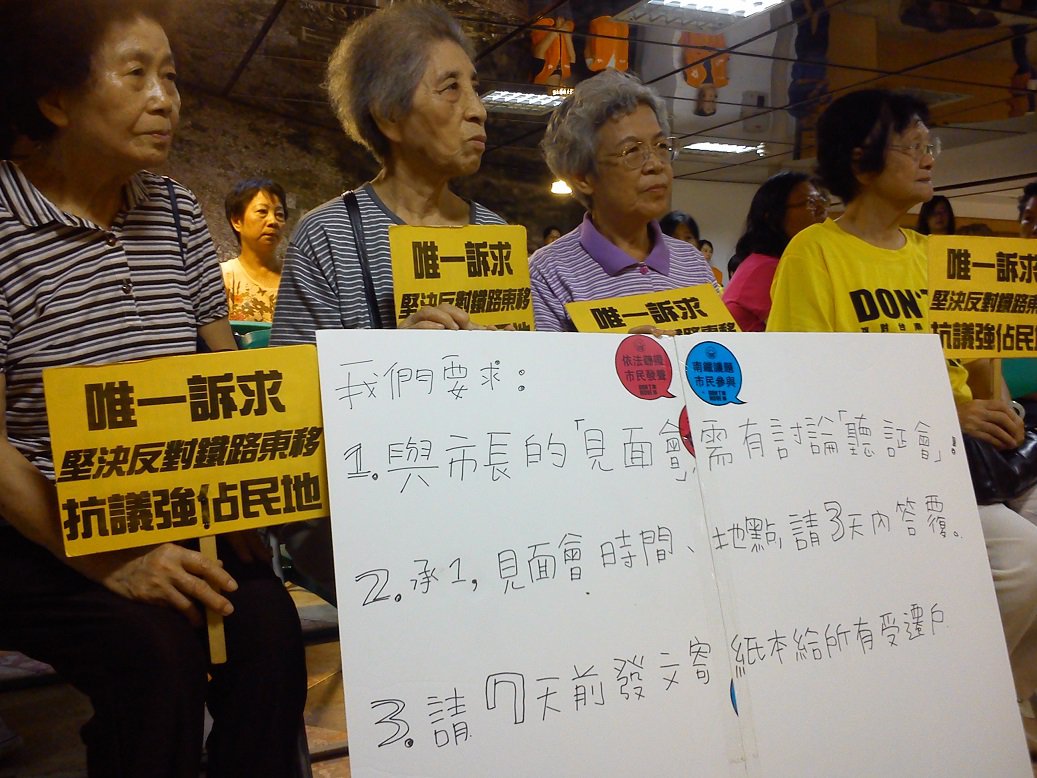 唯一訴求
堅決反對鐵路東移
唯一訴求
堅決反對鐵路東移
DON'
唯一訴求
堅決反對鐵路東移
抗議強佔民地
唯一訴求
堅決反對鐵路東移
抗議強佔民地
依法聽證
市民發聲
南鐵議題
市民參與
我們要求：
1.與市長的「見面會」,需有討論「聽証會」!
2.承1,見面會時間、地點,請3天內答覆。
3.請7天前發文寄紙本給所有受遷戶